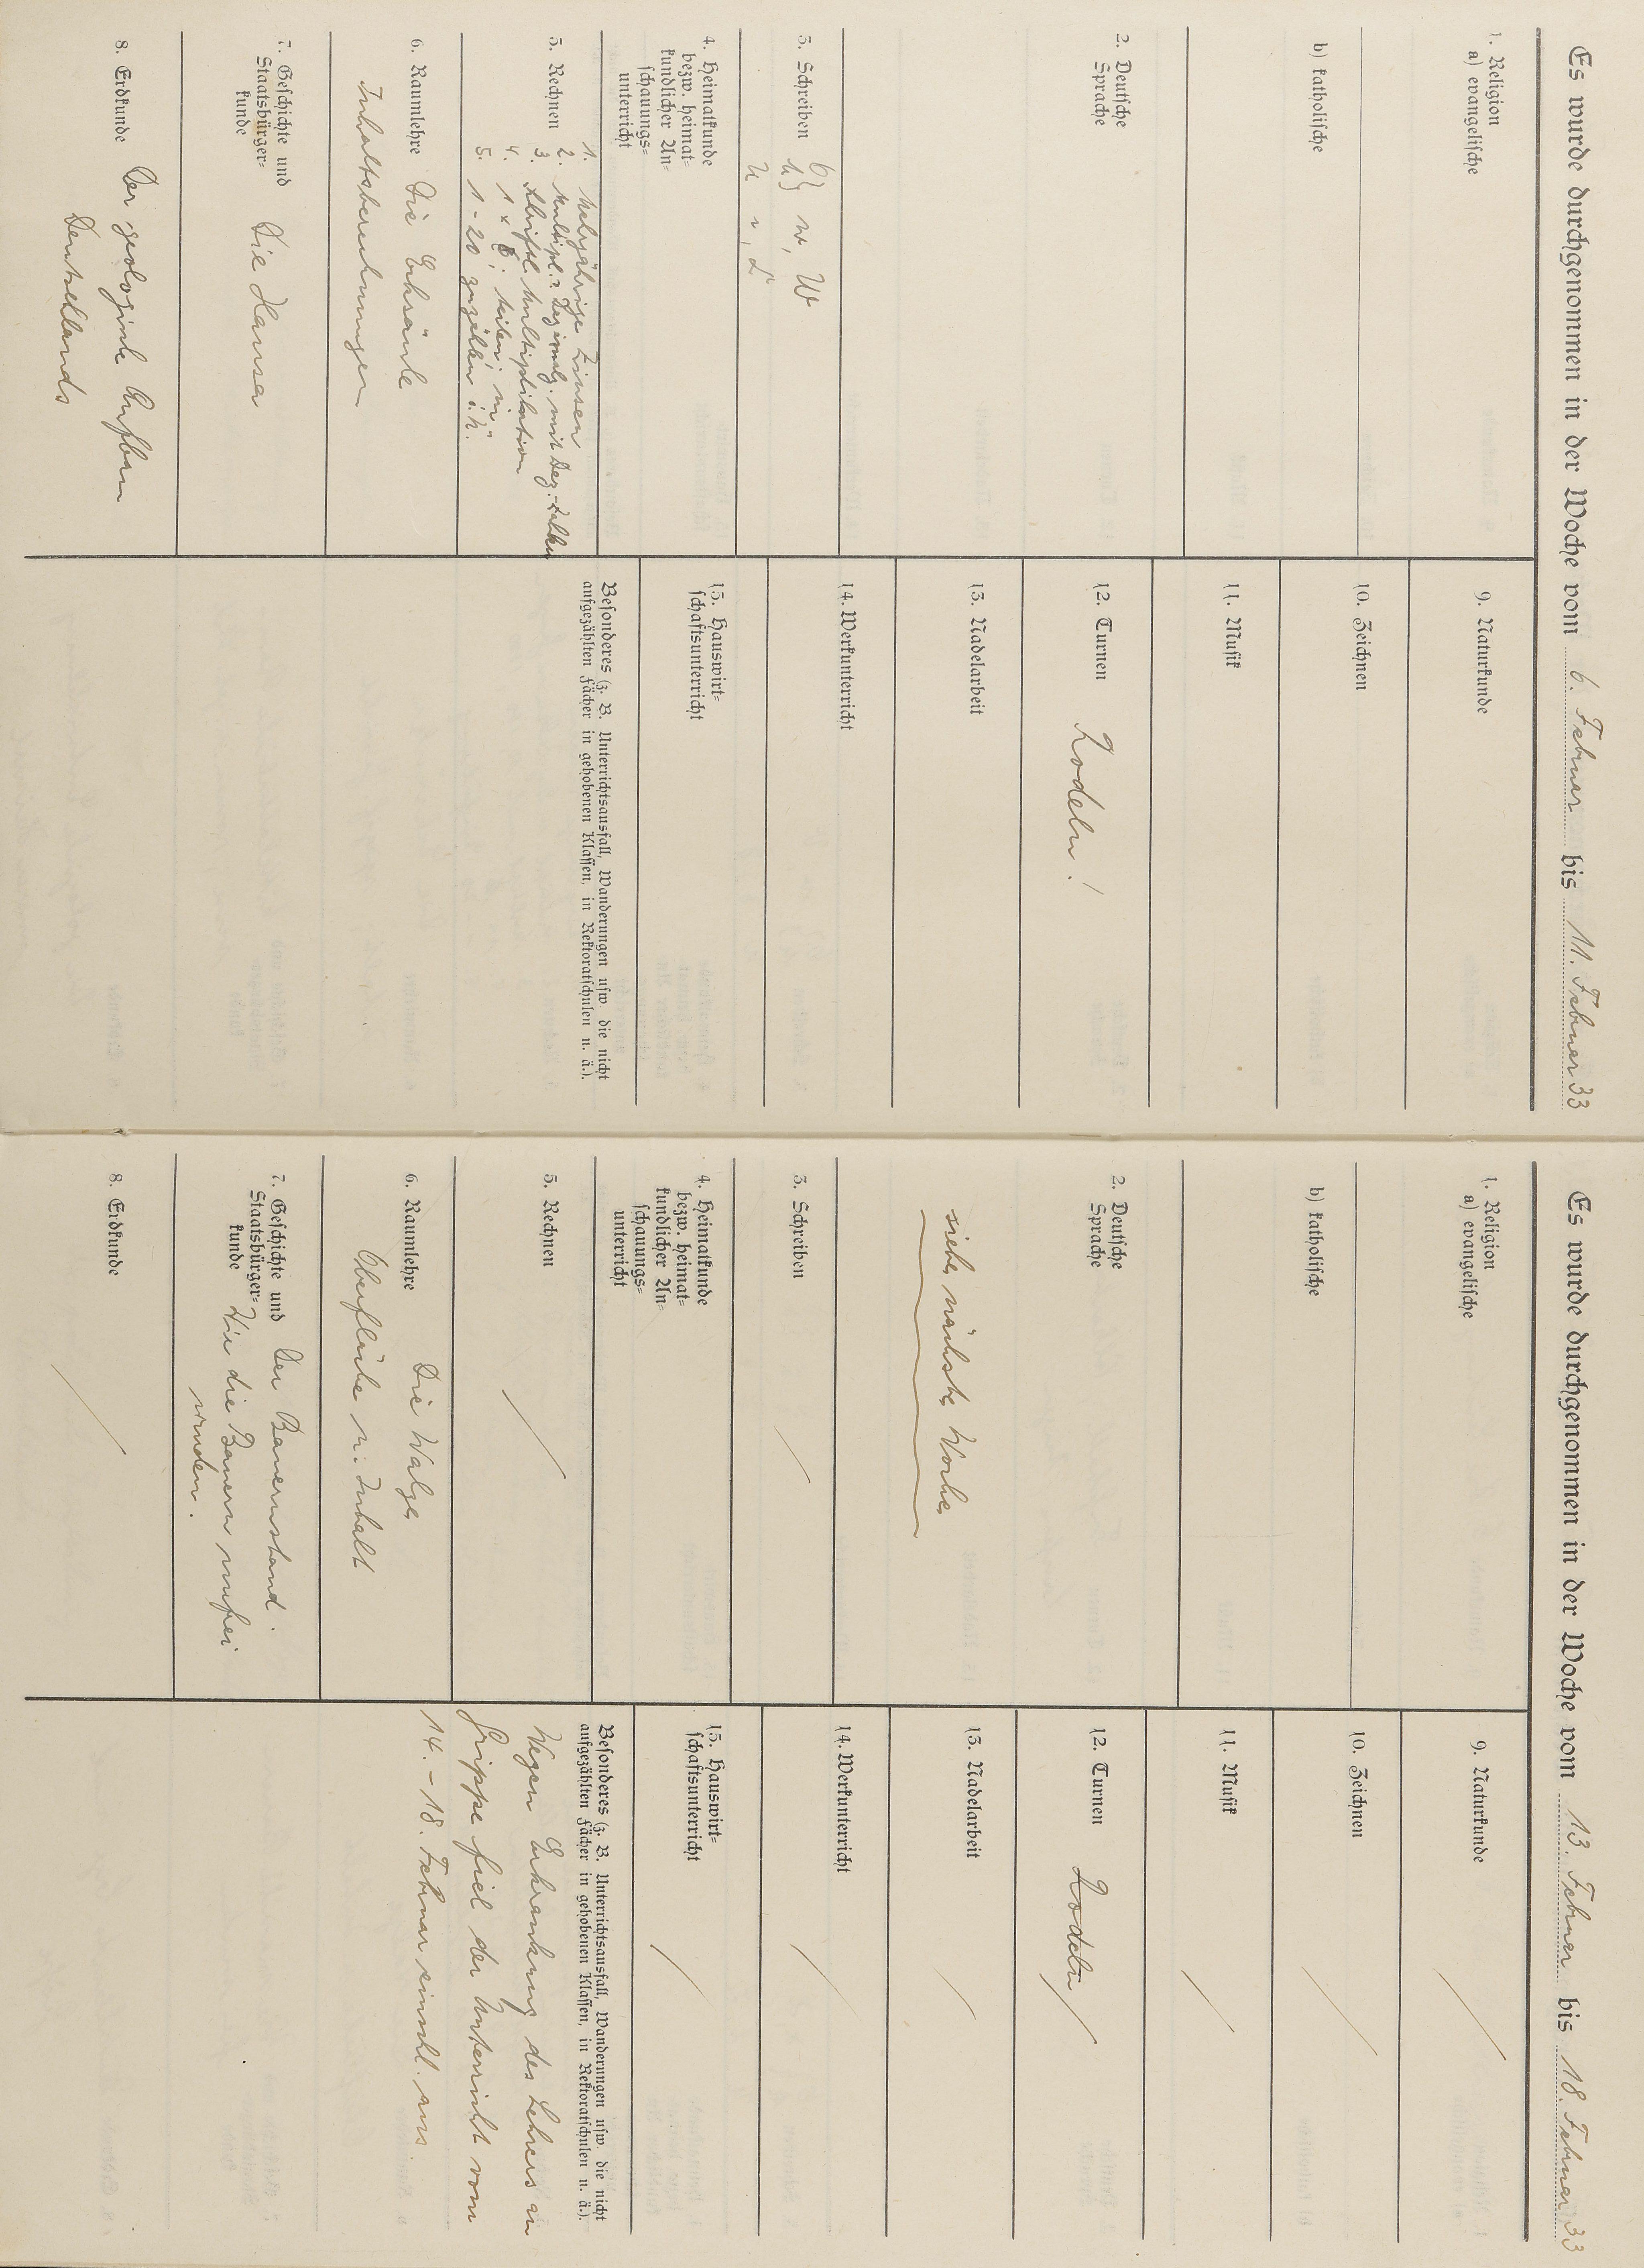 Es wurde durchgenommen in der Woche vom 6. Februar bis 11. Februar 33
1. Religion
a) evangelische
b) katholische
2. Deutsche
Sprache
3. Schreiben
6} w, W
u n, L
4. Heimatkunde
bezw. heimat=
kundlicher An=
schauungs=
unterricht
5. Rechnen
1. Mehrjährige Zinsen
2. Multipl. Dezimalz. mit Dez.-Zahlen
3. Schriftl. Multiplikation
4. 1 x 6; teilen; in
5. 1-20 zuzählen
6. Raumlehre Die Ecksäule
Inhaltsberechnungen
7. Geschichte und
Staatsbürger=
kunde
Die Hansa
8. Erdkunde Der geologische Aufbau
Deutschlands
9. Naturkunde
10. Zeichnen
11. Musik
12. Turnen Rodeln!
13. Nadelarbeit
14. Werkunterricht
15. Hauswirt=
schaftsunterricht
Besonderes (z. B. Unterrichtsausfall, Wanderungen usw. die nicht
aufgezählten Fächer in gehobenen Klassen, in Rektoratschulen u. ä.).
Es wurde durchgenommen in der Woche vom 13. Februar bis 18. Februar 33
1. Religion
a) evangelische
b) katholische
2. Deutsche
Sprache
siehe nächste Woche
3. Schreiben
4. Heimatkunde
bezw. heimat=
kundlicher An=
schauungs=
unterricht
5. Rechnen
6. Raumlehre Die Walze
Oberfläche u. Inhalt
7. Geschichte und
Staatsbürger=
kunde
Der Bauernstand.
Wie die Bauern unfrei
wurden.
8. Erdkunde
9. Naturkunde
10. Zeichnen
11. Musik
12. Turnen Rodeln
13. Nadelarbeit
14. Werkunterricht
15. Hauswirt=
schaftsunterricht
Besonderes (z. B. Unterrichtsausfall, Wanderungen usw. die nicht
aufgezählten Fächer in gehobenen Klassen, in Rektoratschulen u. ä.).
Wegen Erkrankung des Lehrers an
Grippe fiel der Unterricht vom
14. - 18. Februar einschl. aus.